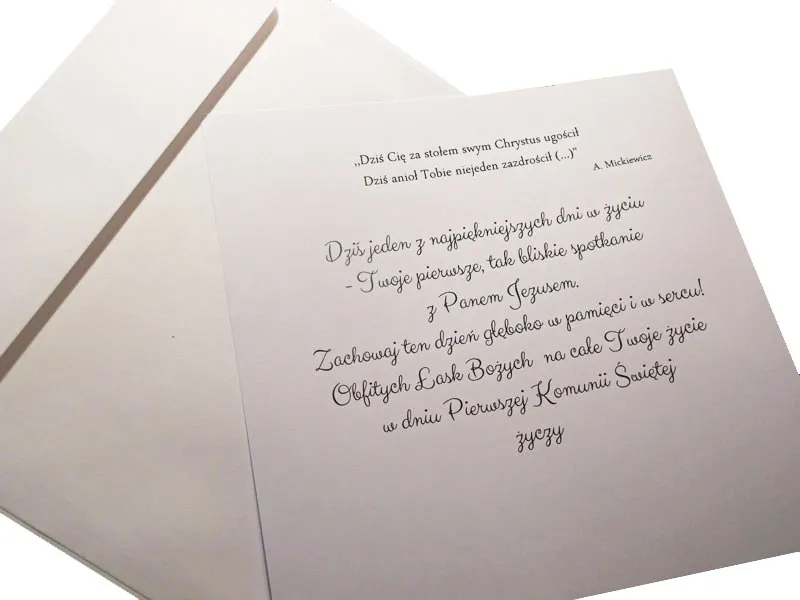 „Dziś Cię za stołem swym Chrystus ugościł
Dziś anioł Tobie niejeden zazdrościł (...)”
A. Mickiewicz
Dziś jeden z najpiękniejszych dni w życiu
- Twoje pierwsze, tak bliskie spotkanie
z Panem Jezusem.
Zachowaj ten dzień głęboko w pamięci i w sercu!
Obfitych Łask Bożych na całe Twoje życie
w dniu Pierwszej Komunii Świętej
życzy